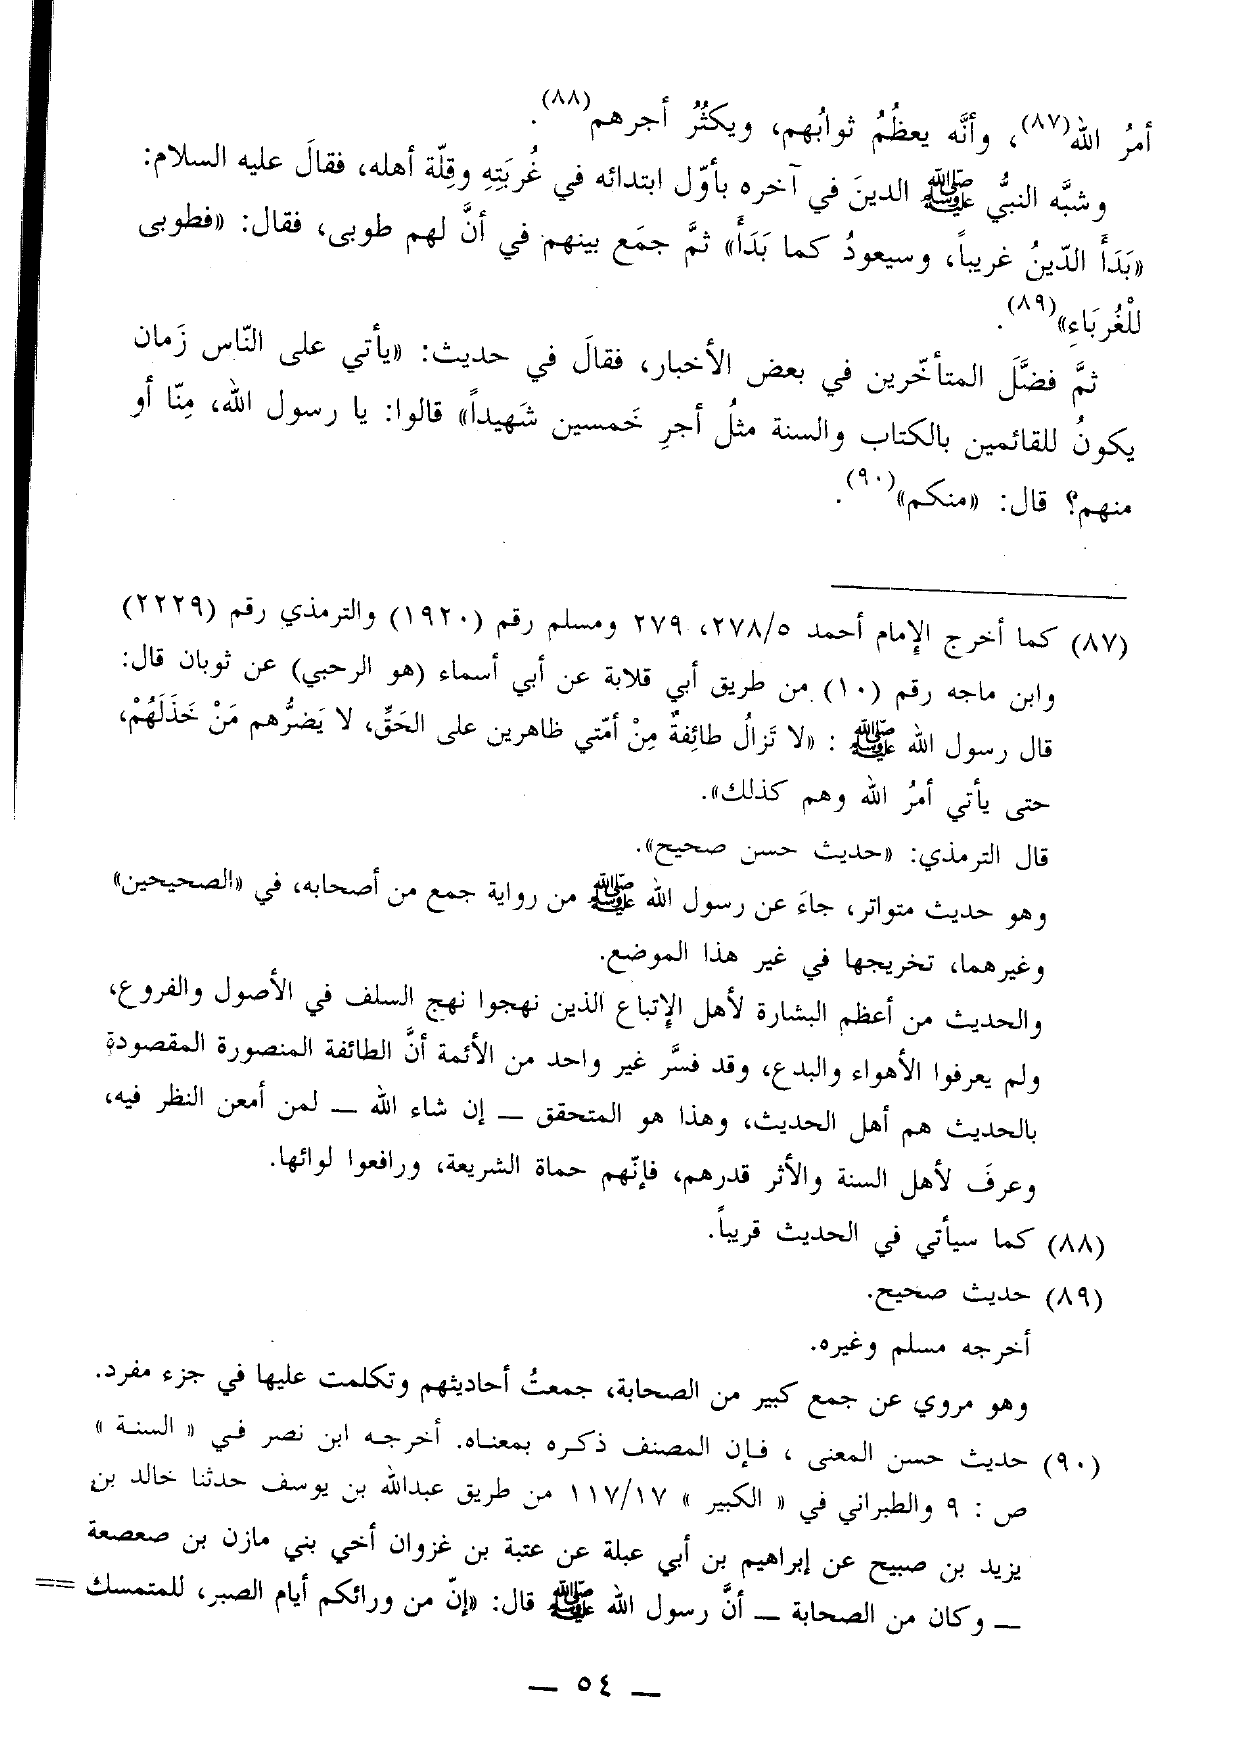 أمرُ الله(٨٧)، وأنَّه يعظُمُ ثوابُهم، ويكثُرُ أجرهم(٨٨).
وشبَّه النبيُّ ﷺ الدينَ في آخره بأوّل ابتدائه في غُربَتِهِ وقِلّة أهله، فقالَ عليه السلام:
«بَدَأَ الدّينُ غريباً، وسيعودُ كما بَدَأَ» ثمَّ جمَع بينهم في أنَّ لهم طوبى، فقال: «فطوبى
للْغُرَبَاءِ»(٨٩).
ثمَّ فضَّلَ المتأخّرين في بعض الأخبار، فقالَ في حديث: «يأتي على النّاس زَمان
يكونُ للقائمين بالكتاب والسنة مثلُ أجرِ خَمسين شَهيداً» قالوا: يا رسول الله، مِنّا أو
منهم؟ قال: «منكم»(٩٠).
(٨٧) كما أخرج الإمام أحمد ٢٧٨/٥، ٢٧٩ ومسلم رقم (١٩٢٠) والترمذي رقم (٢٢٢٩)
وابن ماجه رقم (١٠) من طريق أبي قلابة عن أبي أسماء (هو الرحبي) عن ثوبان قال:
قال رسول الله ﷺ : «لا تَزالُ طائِفةٌ مِنْ أمّتي ظاهرين على الحَقِّ، لا يَضرُّهم مَنْ خَذَلَهُمْ،
حتى يأتي أمرُ الله وهم كذلك».
قال الترمذي: «حديث حسن صحيح».
وهو حديث متواتر، جاءَ عن رسول الله ﷺ من رواية جمع من أصحابه، في «الصحيحين»
وغيرهما، تخريجها في غير هذا الموضع.
والحديث من أعظم البشارة لأهل الإتباع الذين نهجوا نهج السلف في الأصول والفروع،
ولم يعرفوا الأهواء والبدع، وقد فسَّر غير واحد من الأئمة أنَّ الطائفة المنصورة المقصودة
بالحديث هم أهل الحديث، وهذا هو المتحقق ــ إن شاء الله ــ لمن أمعن النظر فيه،
وعرفَ لأهل السنة والأثر قدرهم، فإنّهم حماة الشريعة، ورافعوا لوائها.
(٨٨) كما سيأتي في الحديث قريباً.
(٨٩) حديث صحيح.
أخرجه مسلم وغيره.
وهو مروي عن جمع كبير من الصحابة، جمعتُ أحاديثهم وتكلمت عليها في جزء مفرد.
(٩٠) حديث حسن المعنى ، فإن المصنف ذكره بمعناه. أخرجه ابن نصر في « السنة »
ص : ٩ والطبراني في « الكبير » ١١٧/١٧ من طريق عبدالله بن يوسف حدثنا خالد بن
يزيد بن صبيح عن إبراهيم بن أبي عبلة عن عتبة بن غزوان أخي بني مازن بن صعصعة
ــ وكان من الصحابة ــ أنَّ رسول الله ﷺ قال: «إنّ من ورائكم أيام الصبر، للمتمسك ==
ــ ٥٤ ــ